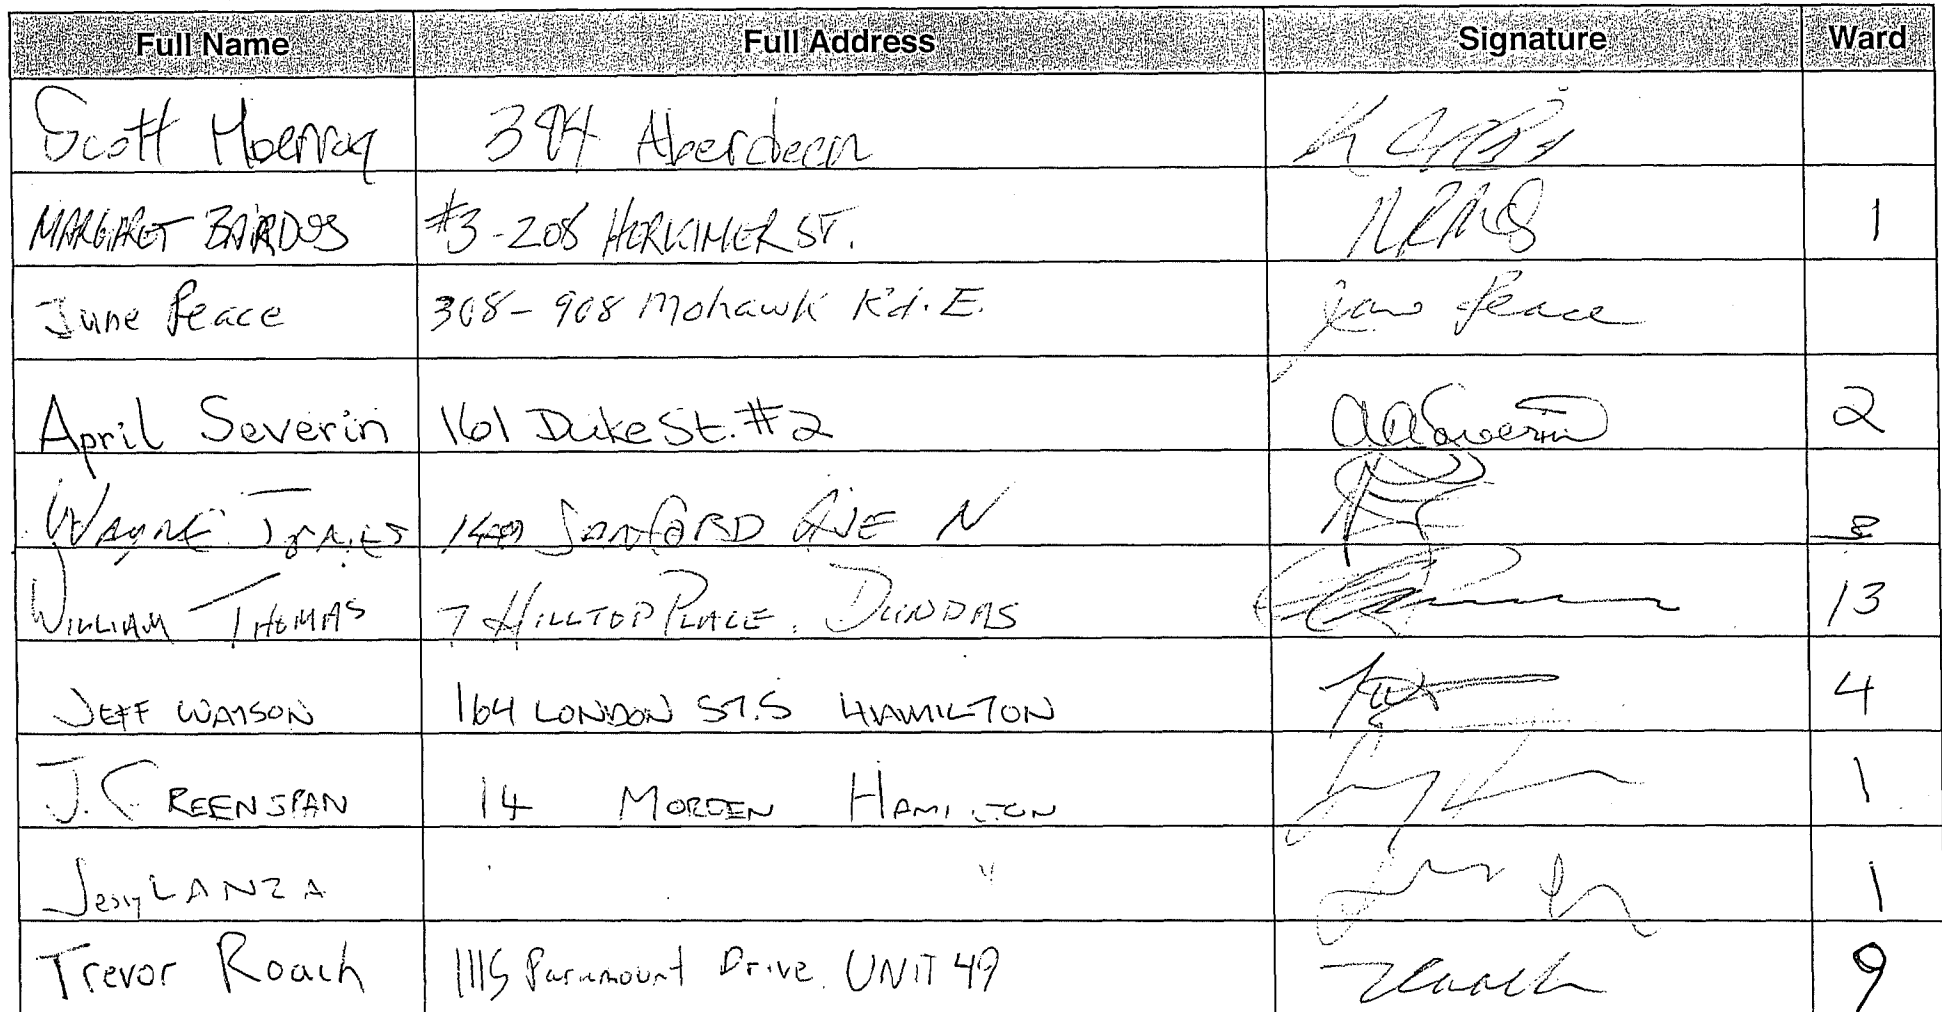 Full Name Full Address Signature Ward
Scott 394 Aberdeen
MARGARET BARDOS #3-208 HERKIMER ST. 1
June Peace 308-908 Mohawk Rd. E. June Peace
April Severin 161 Duke St. #2 AASeverin 2
WAYNE SANFORD AVE N 3
WILLIAM THOMAS 7 HILLTOP PLACE. DUNDAS 13
JEFF WATSON 164 LONDON ST. S HAMILTON 4
J. GREENSPAN 14 MORDEN HAMILTON 1
Jessy LANZA " 1
Trevor Roach 1115 Paramount Drive. UNIT 49 TRoach 9